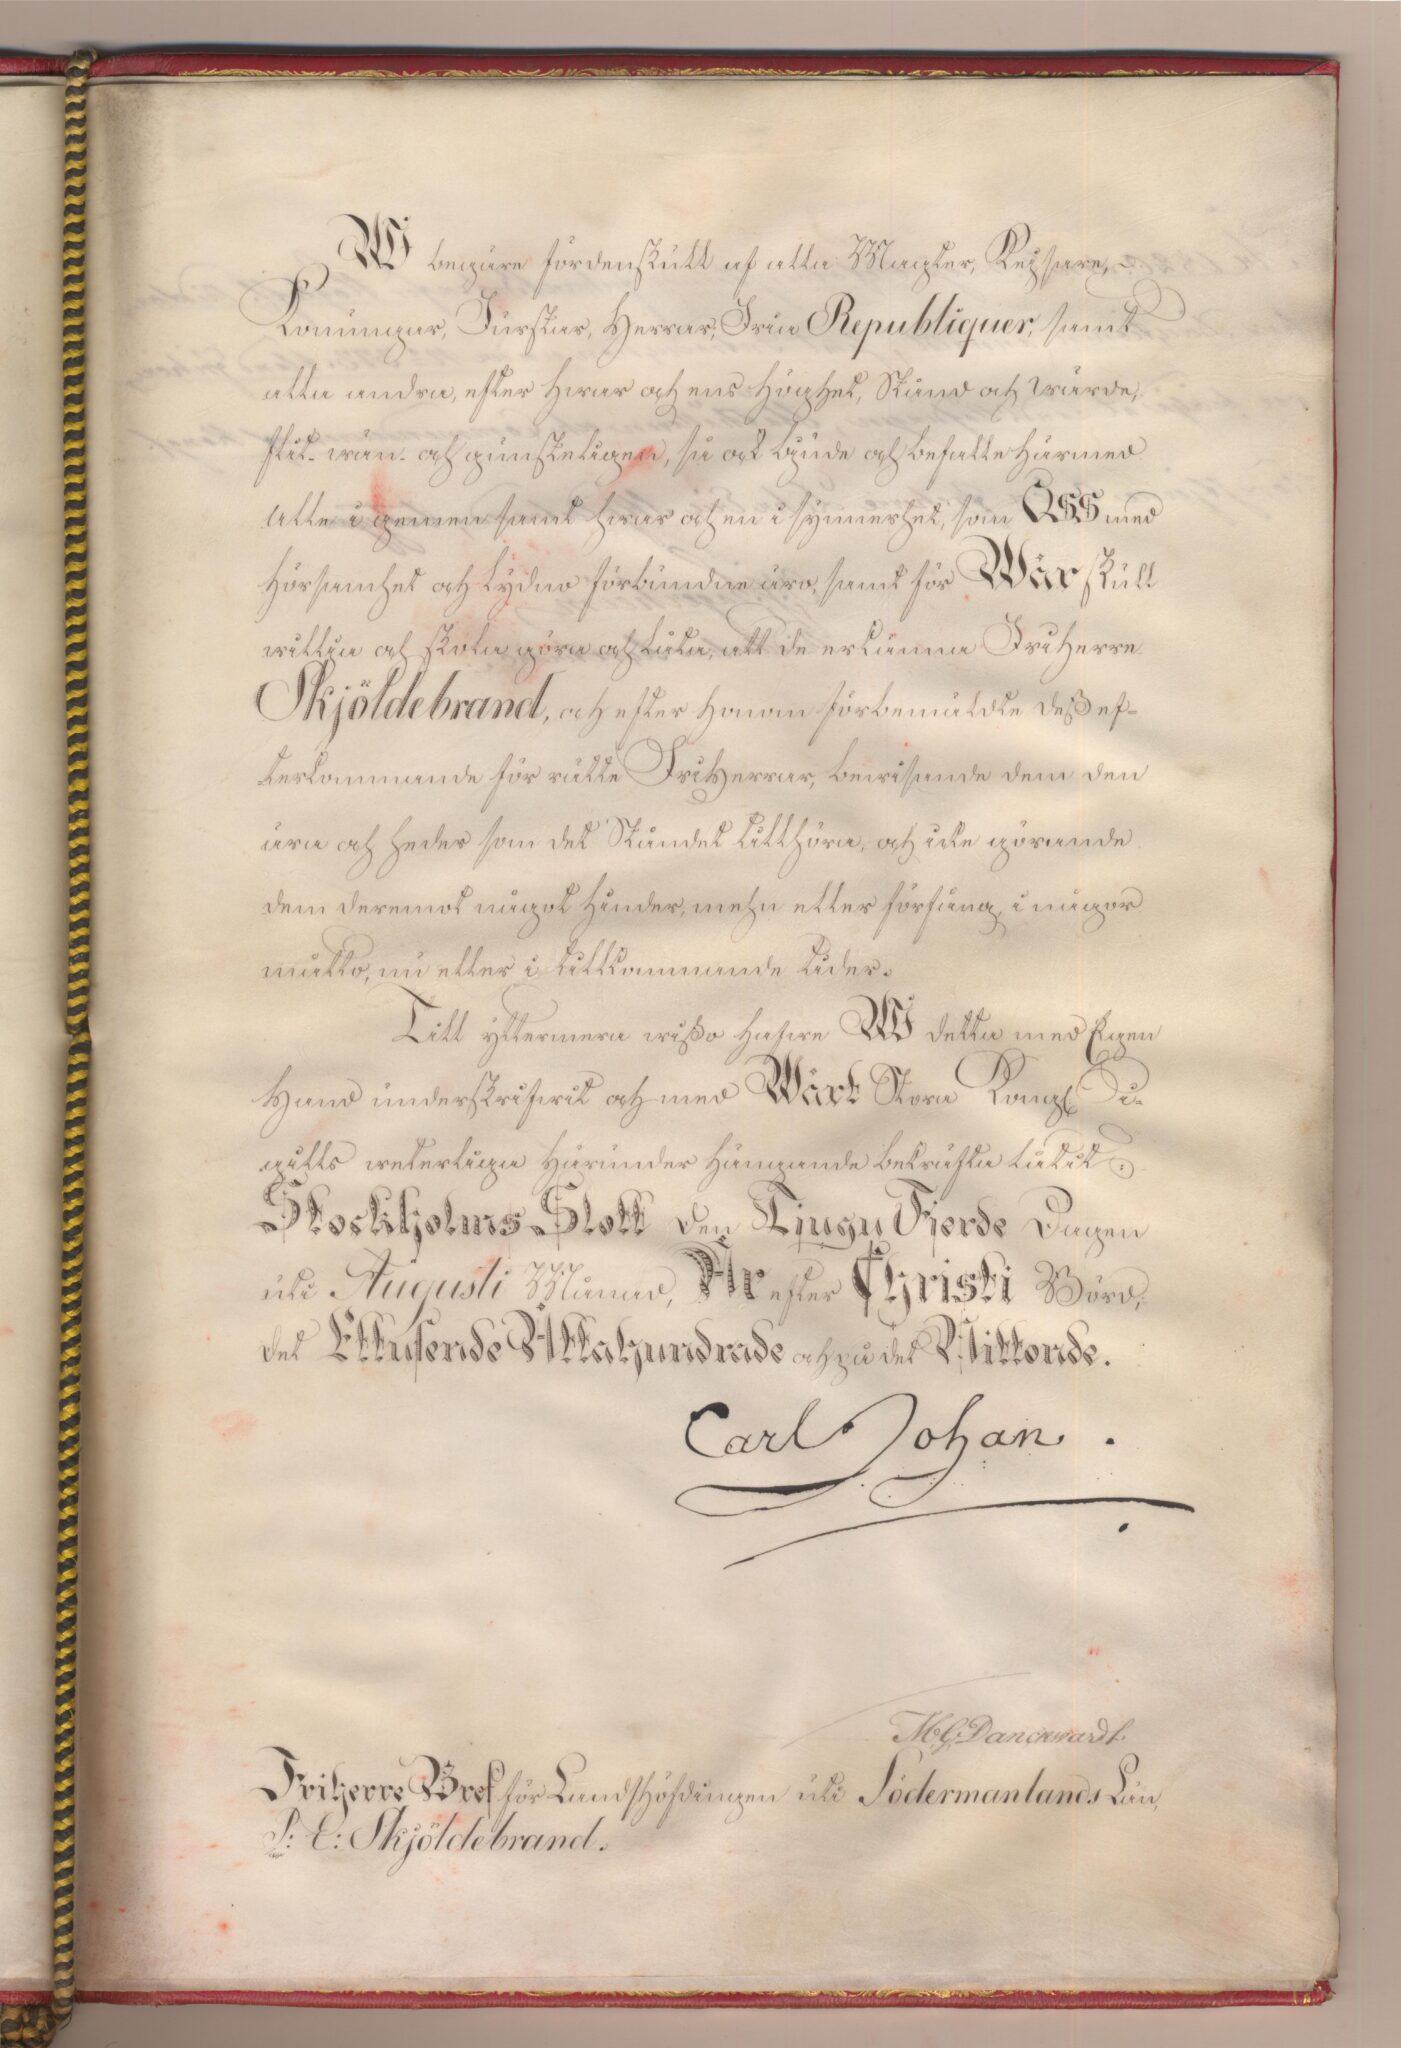 Wi begäre fördenskull af alla Magter, Keysare,
Konungar, Furstar, Herrar, Fria Republiquer, samt
alla andra, efter hwar och ens Höghet, Stånd och wärde,
flit- wän- och gunsteligen, så ock bjude och befalle härmed
Alle i gemen samt hwar och en i synnerhet, som OSS med
hörsamhet och lydno förbundne äro, samt för Wår skull
willja och skola göra och låta, att de erkänna Friherre
Skjöldebrand, och efter honom förbemäldte deß ef-
terkommande för rätte Friherrar, bewisande dem den
ära och heder som det Ståndet tillhöra, och icke görande
dem deremot något hinder, mehn eller förfång, i någor
måtto, nu eller i tillkommande tider.
Till yttermera wißo hafwe Wi detta med Egen
Hand underskrifwit och med Wårt Stora Kongl Si-
gills weterliga härunder hängande bekräfta låtit.
Stockholms Slott den Tjugu Fjerde Dagen
uti Augusti Månad, År efter Christi Börd,
det Ettusende Åttahundrade och på det Nittonde.
Carl Johan.
M G Danckwardt.
Friherre Bref för Landshöfdingen uti Södermanlands Län,
P: E: Skjöldebrand.